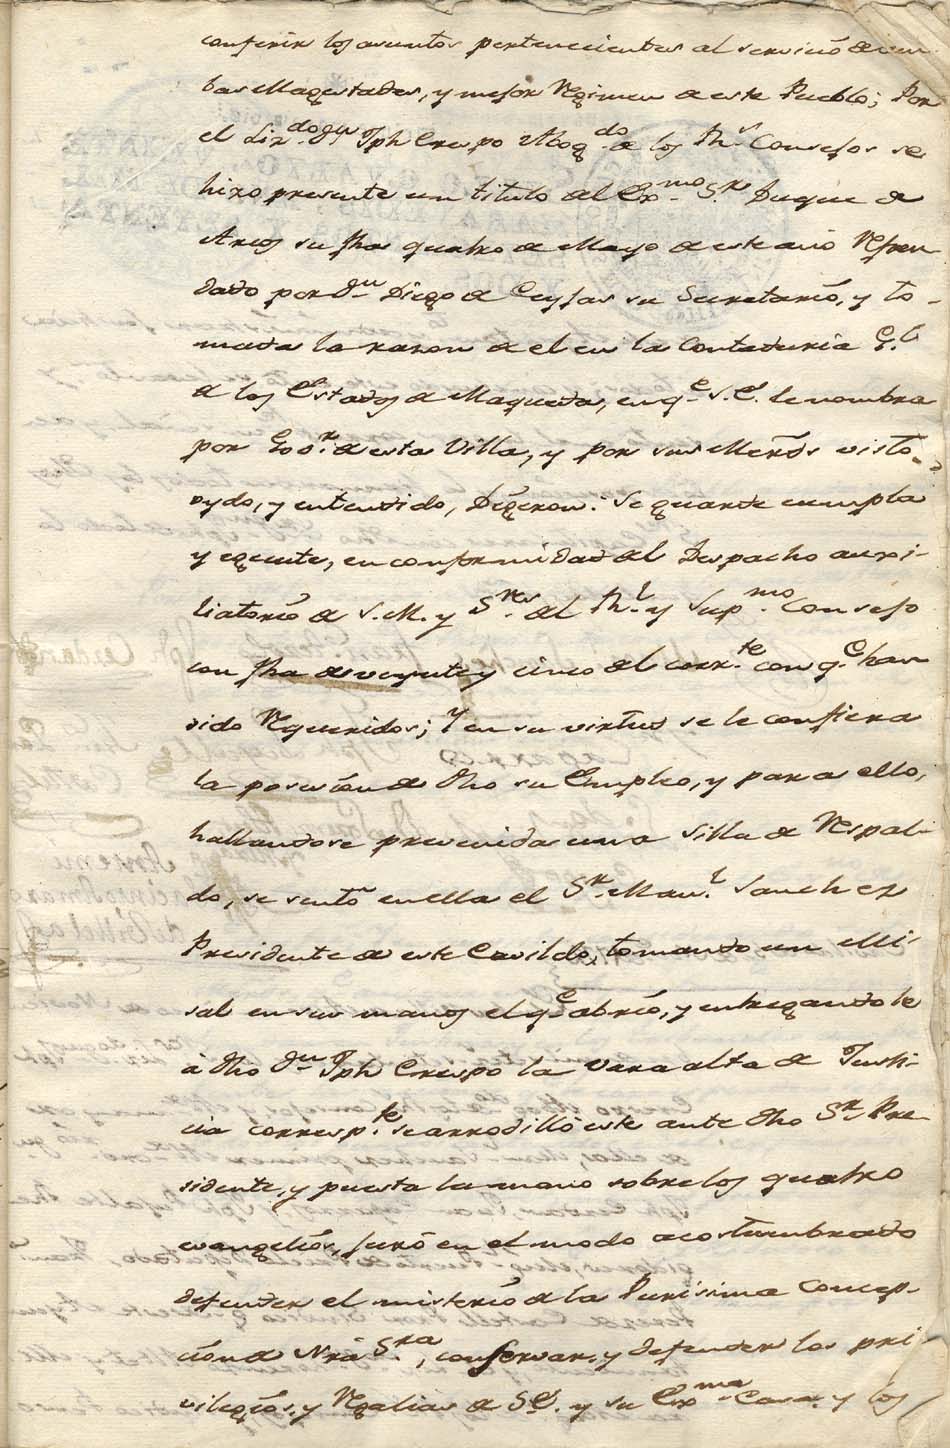 conferir los asuntos pertenecientes al servicio de am
bas Magestades, y mejor Regimen de este Pueblo; Por
el Liz.do Dn Jph Crespo Abog.do de los Rs. Consejos se
hizo presente un titulo del Ex.mo S.r Duque de
Arcos su fha quatro de Mayo de este año Refren
dado por Dn Diego de Ceysas su Secretario, y to-
mada la razon de el en la Contaduria G.l
de los Estados de Maqueda, en q.e S.E. le nombra
por Gov.r de esta Villa, y por sus Merds visto
oydo, y entendido, Digeron: Se guarde cumpla
y egecute, en conformidad del Despacho auxi-
liatorio de S.M. y S.res del Rl. y Sup.mo Consejo
con fha de veynte y cinco del corr.te con q.e han
sido Requeridos; Y en su virtud se le confiera
la posesion de dho su Empleo, y para ello,
hallandose prevenida una Silla de Respal-
do, se sentó en ella el S.r Man.l Sanchez
Presidente de este Cavildo, tomando un Mi-
sal en sus manos el q.e abrió, y entregandole
á dho Dn Jph Crespo la vara alta de Justi-
cia corresp.te se arrodilló este ante dho S.r Pre-
sidente, y puesta la mano sobre los quatro
evangelios, juró en el modo acostumbrado
defender el misterio de la Purisima Concep-
ción de Nrã S.ra, conservar, y defender los pri
vilegios, y Regalias de S.E. y su Ex.ma Casa, y los